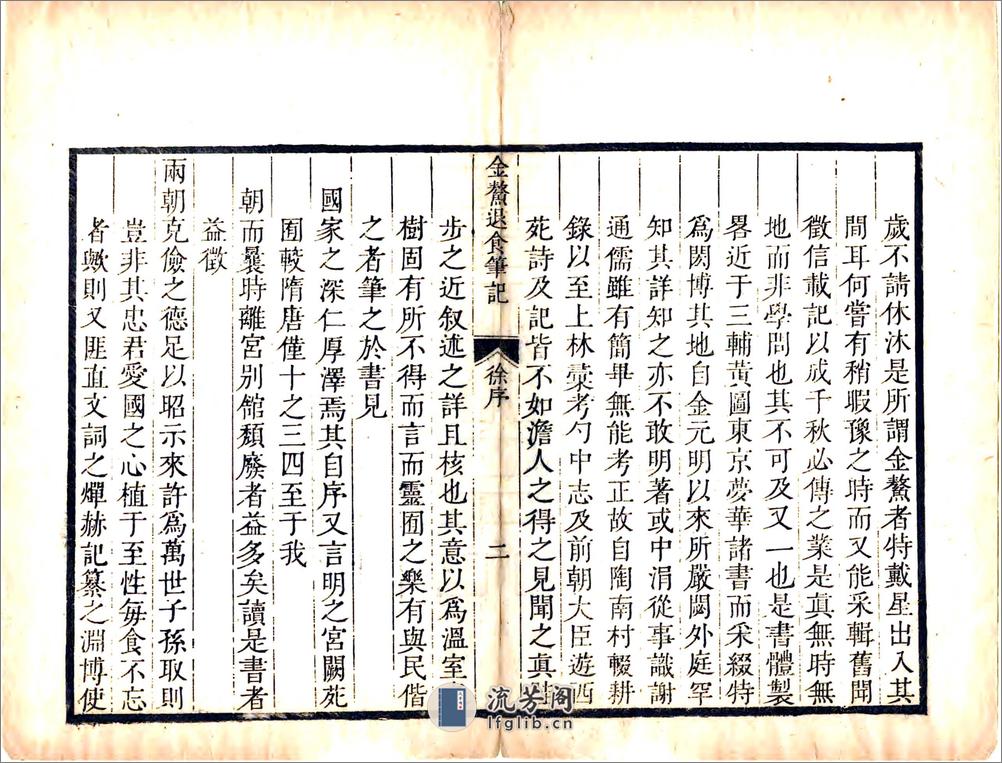 歲不請休沐是所謂金鰲者特戴星出入其
間耳何嘗有稍暇豫之時而又能采輯舊聞
徵信載記以成千秋必傳之業是眞無時無
地而非學問也其不可及又一也是書體製
畧近于三輔黃圖東京夢華諸書而采綴特
爲閎博其地自金元明以來所嚴闕外庭罕
知其詳知之亦不敢明著或中涓從事識謝
通儒雖有簡畢無能考正故自陶南村輟耕
錄以至上林彚考勺中志及前朝大臣遊西
苑詩及記皆不如澹人之得之見聞之眞
金鰲退食筆記
徐序
二
步之近叙述之詳且核也其意以爲溫室
樹固有所不得而言而靈囿之樂有與民偕
之者筆之於書見
國家之深仁厚澤焉其自序又言明之宮闕苑
囿較隋唐僅十之三四至于我
朝而曩時離宮別館頹廢者益多矣讀是書者
益徵
兩朝克儉之德足以昭示來許爲萬世子孫取則
豈非其忠君愛國之心植于至性每食不忘
者歟則又匪直文詞之燀赫記纂之淵博使
流芳阁
lfglib.cn